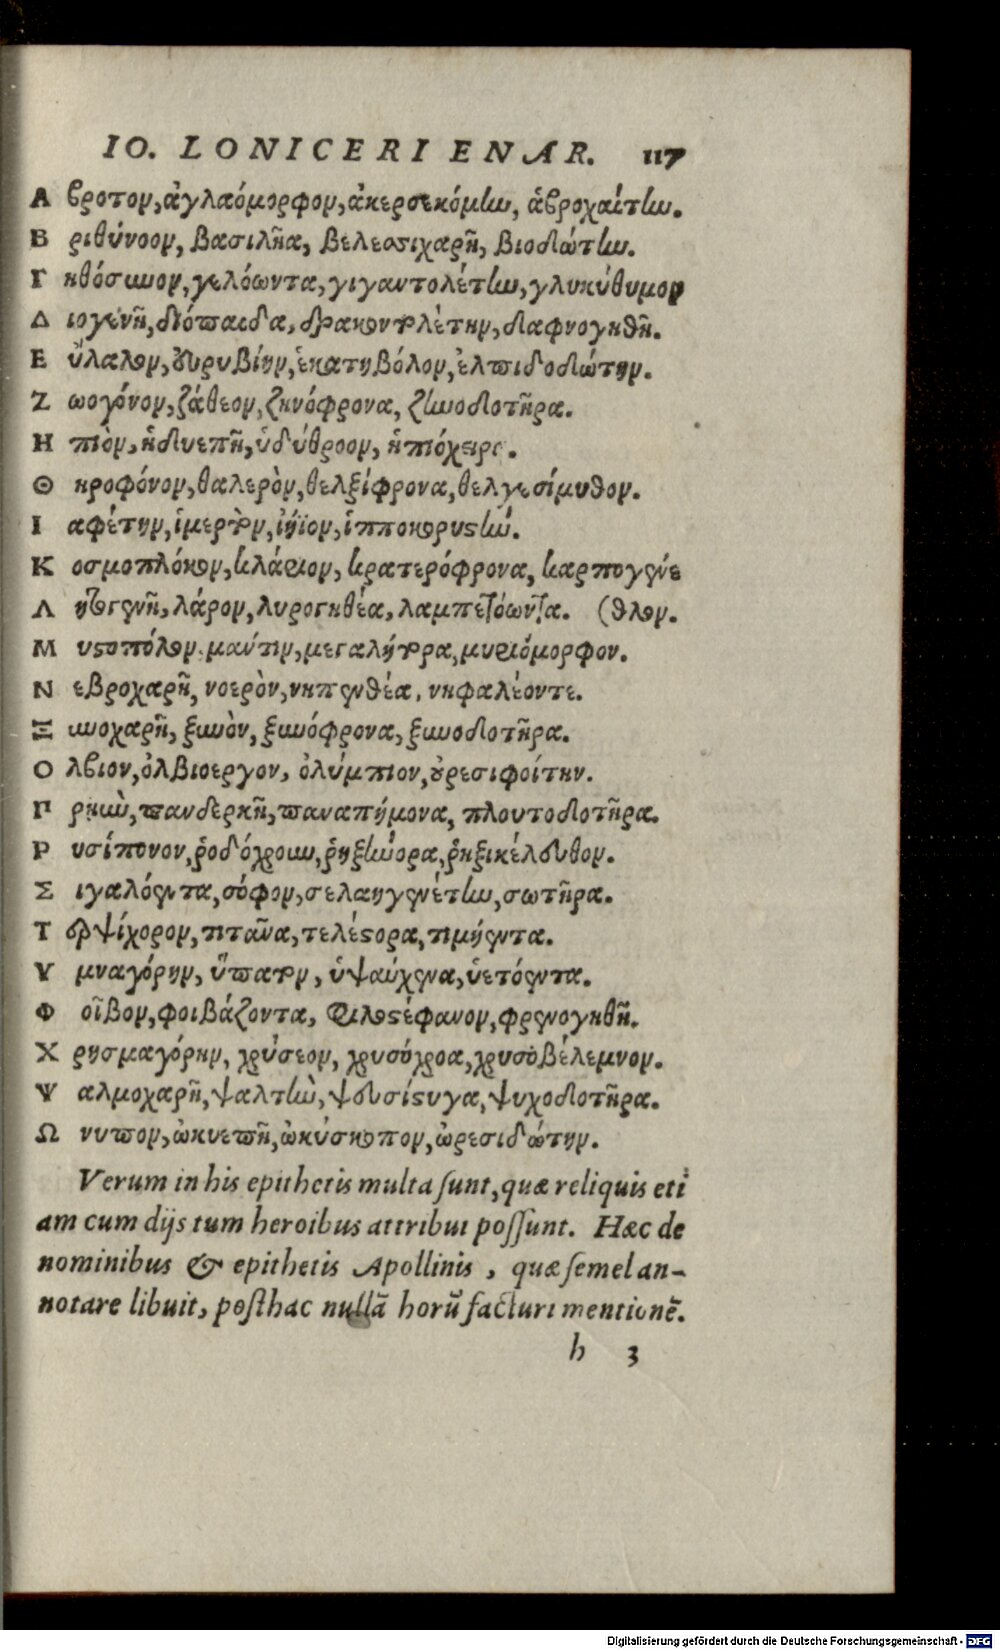 IO. LONICERI ENAR. 117
Α βροτον, ἀγλαόμορφον, ἀκερσεκόμην, ἁβροχαίτην.
Β ριθύνοον, βασιλῆα, βελεσσιχαρῆ, βιοδώτην.
Γ ηθόσυνον, γελόωντα, γιγαντολέτην, γλυκύθυμον
Δ ιογενῆ, διόπαιδα, δρακοντολέτην, δαφνογηθῆ.
Ε ὔλαλον, εὐρυβίην, ἑκατηβόλον, ἐλπιδοδώτην.
Ζ ωογόνον, ζάθεον, ζηνόφρονα, ζηνοδοτῆρα.
Η πιὸν, ἡδυεπῆ, ἡδύθροον, ἠπιόχειρα.
Θ ηροφόνον, θαλερὸν, θελξίφρονα, θελγεσίμυθον.
Ι αφέτην, ἱμερτὸν, ἰήϊον, ἱπποκορυστήν.
Κ οσμοπλόκον, κλάριον, κρατερόφρονα, καρπογένε
Λ ητογενῆ, λάρον, λυρογηθέα, λαμπετόωντα. (θλον.
Μ υσοπόλον, μαύτιν, μεγαλήτορα, μυριόμορφον.
Ν εβροχαρῆ, νοερὸν, νηπενθέα, νηφαλέοντε.
Ξ υνοχαρῆ, ξυνὸν, ξυνόφρονα, ξυνοδοτῆρα.
Ο λβιον, ὀλβιοεργον, ὀλύμπιον, οὐρεσιφοίτην.
Π ρηῢν, πανδερκῆ, παναπήμονα, πλουτοδοτῆρα.
Ρ υσίπονον, ῥοδόχροον, ῥηξήνορα, ῥηξικέλευθον.
Σ ιγαλόεντα, σόφον, σελαηγενέτην, σωτῆρα.
Τ ερψίχορον, τιτᾶνα, τελέστορα, τιμήεντα.
Υ μναγόρην, ὕπατον, ὑψαύχενα, ὑετόεντα.
Φ οῖβον, φοιβάζοντα, φιλοστέφανον, φρενογηθῆ.
Χ ρησμαγόρην, χρύσεον, χρυσόχροα, χρυσοβέλεμνον.
Ψ αλμοχαρῆ, ψαλτὴν, ψευσίστυγα, ψυχοδοτῆρα.
Ω νυπον, ὠκυεπῆ, ὠκύσκοπον, ὡρεσιδώτην.
Verum in his epithetis multa sunt, quæ reliquis eti
am cum dijs tum heroibus attribui possunt. Hæc de
nominibus & epithetis Apollinis, quæ semel an-
notare libuit, posthac nullā horū facturi mentionē.
h 3
Digitalisierung gefördert durch die Deutsche Forschungsgemeinschaft - DFG